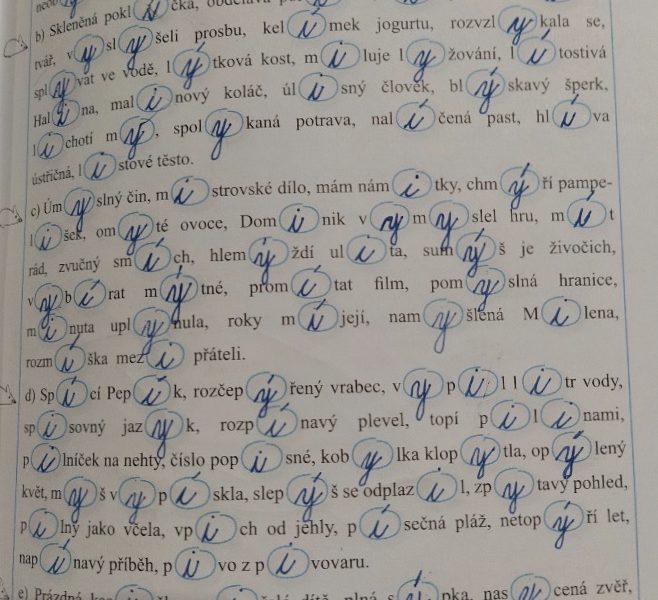 b) Skleněná poklička,
tvář, vyslyšeli prosbu, kelímek jogurtu, rozvzlykala se,
splývat ve vodě, lýtková kost, miluje lyžování, lítostivá
Halina, malinový koláč, úlisný člověk, blýskavý šperk,
lichotí mý, spolykaná potrava, nalíčená past, hlíva
ústřičná, listové těsto.
c) Úmyslný čin, mistrovské dílo, mám námitky, chmýří pampe-
lišek, omyté ovoce, Dominik vymyslel hru, mít
rád, zvučný smích, hlemýždí ulita, sumýš je živočich,
vybírat mýtné, promítat film, pomyslná hranice,
minuta uplynula, roky míjejí, namyšlená Milena,
rozmíška mezi přáteli.
d) Spící Pepík, rozčepýřený vrabec, vypil litr vody,
spisovný jazyk, rozpínavý plevel, topí pilinami,
pilníček na nehty, číslo popisné, kobylka klopytla, opýlený
květ, myš vypískla, slepýš se odplazil, zpytavý pohled,
pilný jako včela, vpich od jehly, písečná pláž, netopýří let,
napínavý příběh, pivo z pivovaru.
e) Prázdná